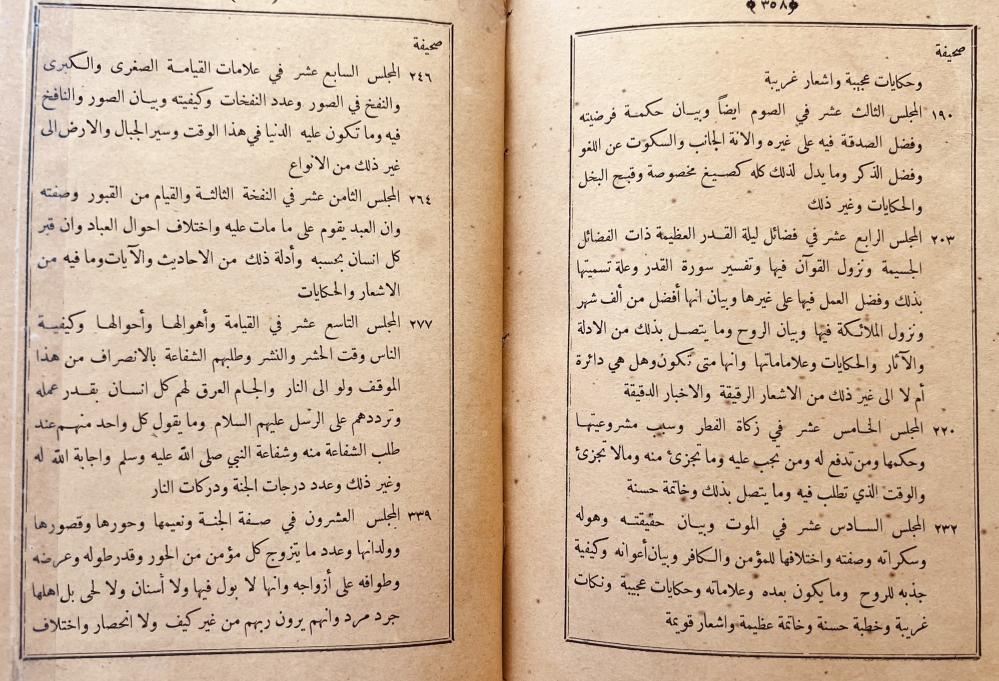 ﴿٣٥٨﴾
صحيفة
وحكايات عجيبة واشعار غريبة
١٩٠ المجلس الثالث عشر في الصوم ايضاً وبيان حكمة فرضيته
وفضل الصدقة فيه على غيره والانة الجانب والسكوت عن اللغو
وفضل الذكر وما يدل لذلك كله كصيغ مخصوصة وقبح البخل
والحكايات وغير ذلك
٢٠٣ المجلس الرابع عشر في فضائل ليلة القدر العظيمة ذات الفضائل
الجسيمة ونزول القرآن فيها وتفسير سورة القدر وعلة تسميتها
بذلك وفضل العمل فيها على غيرها وبيان انها أفضل من ألف شهر
ونزول الملائكة فيها وبيان الروح وما يتصل بذلك من الادلة
والآثار والحكايات وعلاماماتها وانها متى تكون وهل هي دائرة
أم لا الى غير ذلك من الاشعار الرقيقة والاخبار الدقيقة
٢٢٠ المجلس الخامس عشر في زكاة الفطر وسبب مشروعيتها
وحكمها ومن تدفع له ومن تجب عليه وما تجزئ منه ومالا تجزئ
والوقت الذي تطلب فيه وما يتصل بذلك وخاتمة حسنة
٢٣٢ المجلس السادس عشر في الموت وبيان حقيقته وهوله
وسكراته وصفته واختلافها للمؤمن والكافر وبيان أعوانه وكيفية
جذبه للروح وما يكون بعده وعلاماته وحكايات عجيبة ونكات
غريبة وخطبة حسنة وخاتمة عظيمة واشعار قويمة
صحيفة
٢٤٦ المجلس السابع عشر في علامات القيامة الصغرى والكبرى
والنفخ في الصور وعدد النفخات وكيفيته وبيان الصور والنافخ
فيه وما تكون عليه الدنيا في هذا الوقت وسير الجبال والارض الى
غير ذلك من الانواع
٢٦٤ المجلس الثامن عشر في النفخة الثالثة والقيام من القبور وصفته
وان العبد يقوم على ما مات عليه واختلاف احوال العباد وان قبر
كل انسان بحسبه وأدلة ذلك من الاحاديث والآيات وما فيه من
الاشعار والحكايات
٢٧٧ المجلس التاسع عشر في القيامة وأهوالها وأحوالها وكيفية
الناس وقت الحشر والنشر وطلبهم الشفاعة بالانصراف من هذا
الموقف ولو الى النار والجام العرق لهم كل انسان بقدر عمله
وترددهم على الرسل عليهم السلام وما يقول كل واحد منهم عند
طلب الشفاعة منه وشفاعة النبي صلى الله عليه وسلم واجابة الله له
وغير ذلك وعدد درجات الجنة ودركات النار
٣٣٩ المجلس العشرون في صفة الجنة ونعيمها وحورها وقصورها
وولدانها وعدد ما يتزوج كل مؤمن من الحور وقدر طوله وعرضه
وطوافه على أزواجه وانها لا بول فيها ولا أسنان ولا لحى بل اهلها
جرد مرد وانهم يرون ربهم من غير كيف ولا انحصار واختلاف